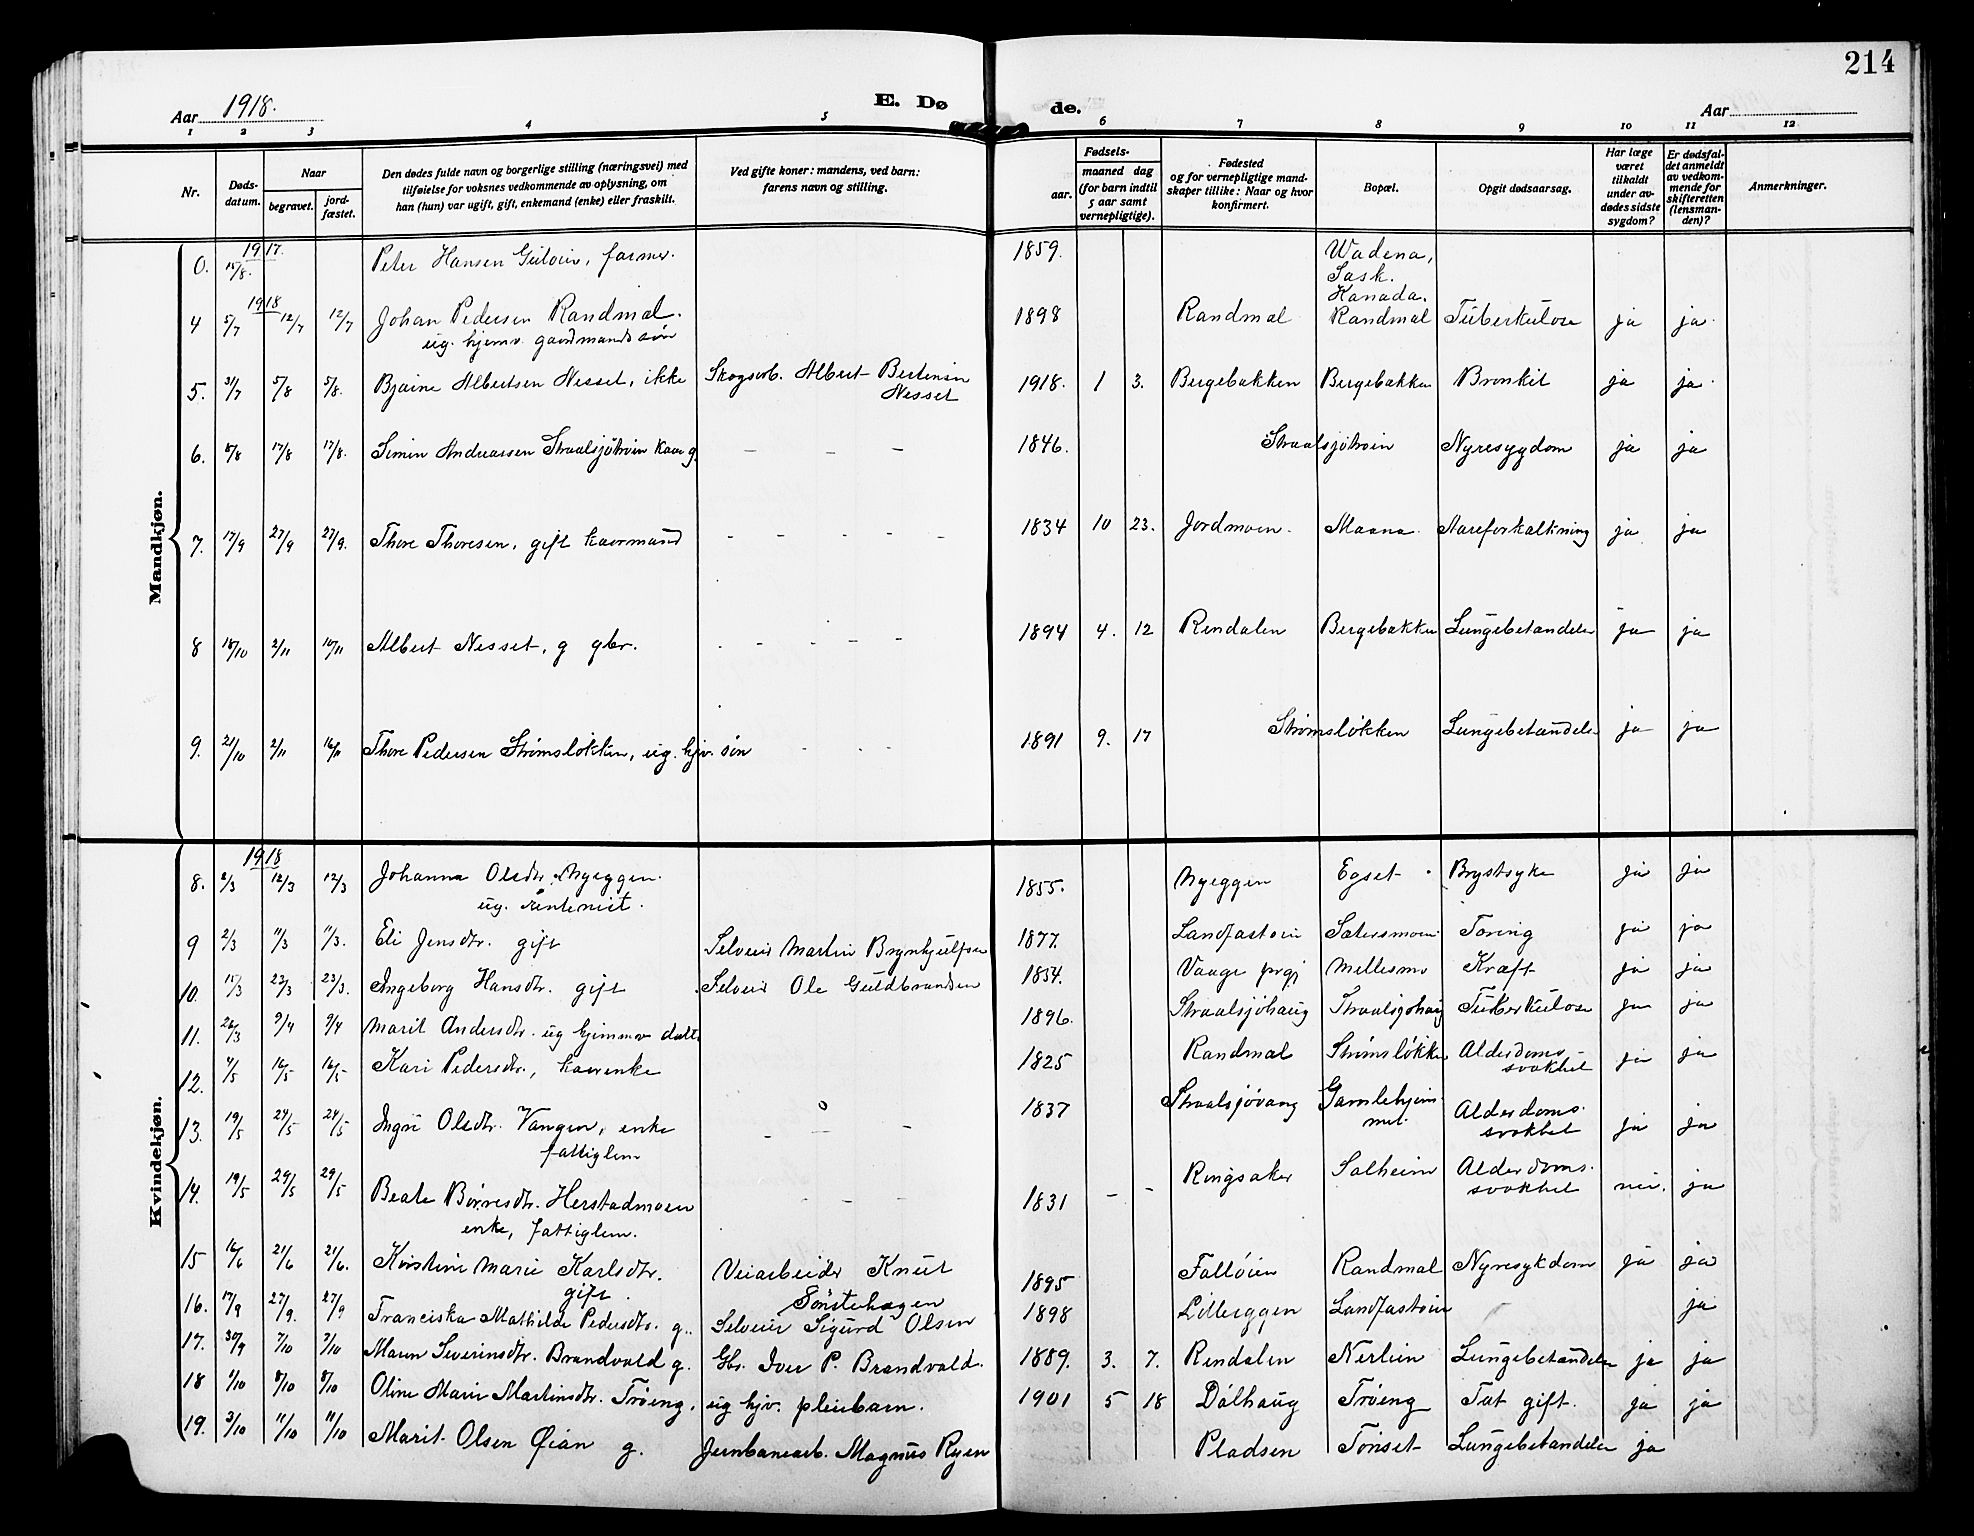 214
Aar 1918. E. Dø de. Aar
1 2 3 4 5 6 7 8 9 10 11 12
Nr. Døds-datum. Naar begravet. jord-fæstet. Den dødes fulde navn og borgerlige stilling (næringsvei) med tilføielse for voksnes vedkommende av oplysning, om han (hun) var ugift, gift, enkemand (enke) eller fraskilt. Ved gifte koner: mandens, ved barn: farens navn og stilling. Fødsels- aar. maaned dag (for barn indtil 5 aar samt vernepligtige). Fødested og for vernepligtige mand-skaper tillike: Naar og hvor konfirmert. Bopæl. Opgit dødsaarsag. Har læge været tilkaldt under av-dødes sidste sygdom? Er dødsfal-det anmeldt av vedkom-mende for skifteretten (lensman-den)? Anmerkninger.
Mandkjøn.
1917.
0. 15/8. Peter Hansen , farmer. 1859. Wadena, Sask. Kanada.
1918
4 5/7 12/7 12/7 Johan Pedersen Randmæl. 1898 Randmæl Randmæl Tüberkulose ja ja.
ug. hjemv. gaardmands søn
5. 31/7 5/8 5/8. Bjarne Albertsen Nesset, ikke Skogsarb. Albert Berntsen Nesset 1918. 1 3. Bergebakken Bergebakken Bronkit ja ja.
6. 8/8 17/8 17/8. Simen Andreassen Straalsjøhvin kaarg. - - - 1846. Straalsjøhvin Nyresygdom ja ja
7. 17/9 27/9 27/9. Thore Thoresen, gift kaarmand - - - - - 1834 10 23. Jordmoen. Maana. Aareforkalkning ja ja
8 18/10 2/11 16/11 Albert Nesset, g gbr. - - - - 1894 4. 12 Rendalen Bergebakken Lungebetændelse ja ja
9. 21/10 2/11 16/11 Thore Pedersen Strømsløkken, ug. hjv. søn 1891 9. 17 Strømsløkken Lungebetændelse ja ja
Kvindekjøn.
1918
8. 2/3 12/3 12/3 Johanna Olsdtr. Nyeggen. 1855. Nyeggen Egset Brystsyke ja ja
ug. rentenist.
9 2/3 11/3 11/3. Eli Jensdtr. gift Selveier Martin Brynhjulfsen 1877. Landfastøien Sætersmoen Tæring ja ja
10. 15/3 23/3 23/3. Ingeborg Hansdtr. gift Selveier Ole Guldbrandsen 1854. Vaage prgj Mellesmo Kræft ja ja
11. 26/3 9/4 9/4 Marit Andersdtr. ug hjemmev datt. 1896. Straalsjøhaug Straalsjøhaug Tuberkulose ja ja
12. 4/5 16/5 16/5 Kari Pedersdtr., kaarenke 1825 Randmæl Strømsløkken Alderdoms-svakhet ja ja
13. 19/5 24/5 24/5 Ingri Olsdtr. Vangen, enke fattiglem - - - 1837 Straalsjøvang Gamlehjem-met. Alderdoms-svakhet ja ja
14. 19/5 29/5 29/5 Beate Børresdtr. Herstadmoen enke, fattiglem. - - - 1831 - - Ringsaker Solheim Alderdoms-svakhet nei. ja
15 16/6 21/6 21/6. Kirstine Marie Karlsdtr. gift. Veiarbeider Knut Sønstehagen 1895 Falløien Randmæl Nyresykdom ja ja
16. 17/9 27/9. 27/9 Franciska Mathilde Pedersdtr. g.. Selveier Sigurd Olsen 1898 Lilleeggen Landfastøien ja
17. 30/9 7/10 7/10 Maren Severinsdtr. Brandvold g. Gbr. Iver P. Brandvold. 1889. 3. 7. Rendalen Nerlien Lungebetændelse ja ja
18 1/10 8/10 8/10 Oline Marie Martinsdtr. Trøeng. ug hjv. pleiebarn. 1901 5 18 Dølhaug Trøeng Tat gift. ja ja
19. 3/10 11/10 11/10 Marit Olsen Øian g. Jernbanearb. Magnus Ryen Pladsen Tønset Lungebetændelse ja